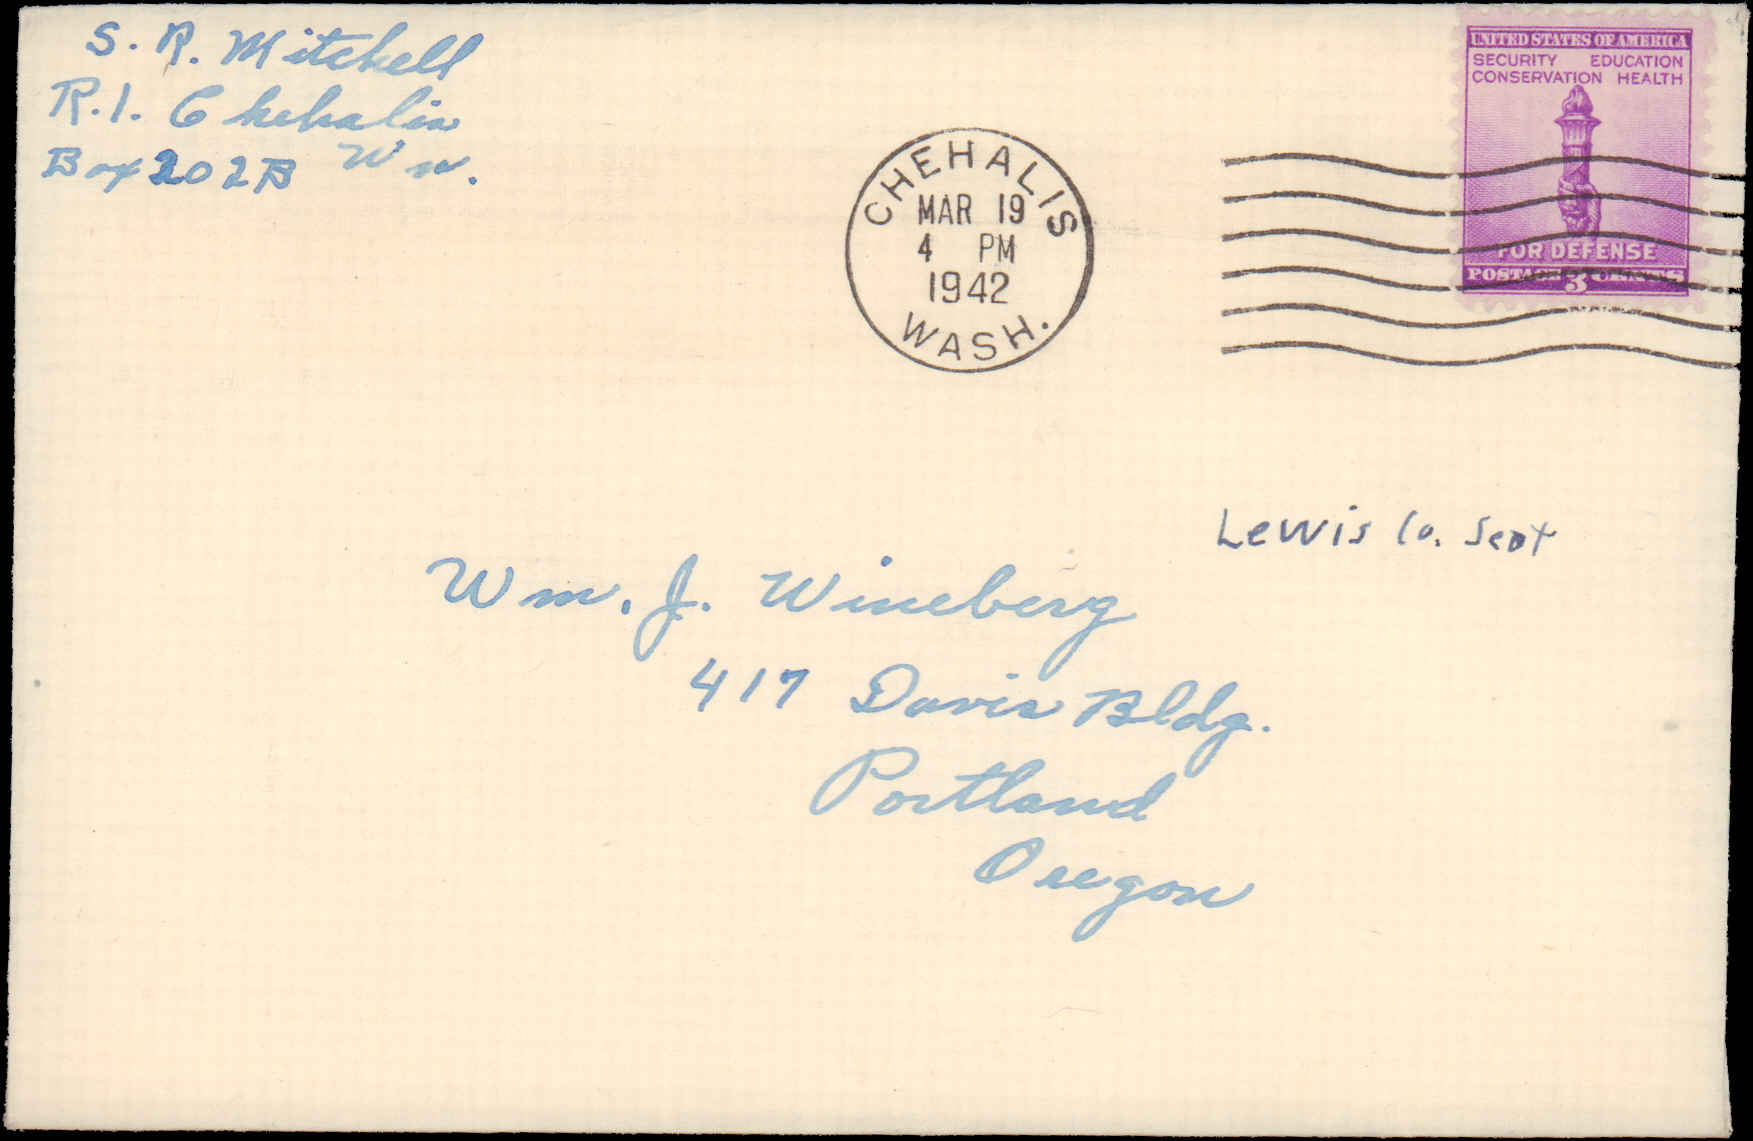 S. R. Mitchell
R.1. Chehalis
Box 202B Wn.
CHEHALIS
MAR 19
4 PM
1942
WASH.
UNITED STATES OF AMERICA
SECURITY EDUCATION
CONSERVATION HEALTH
FOR DEFENSE
POSTAGE 3 CENTS
Lewis Co. Seat
Wm. J. Wineberg
417 Davis Bldg.
Portland
Oregon